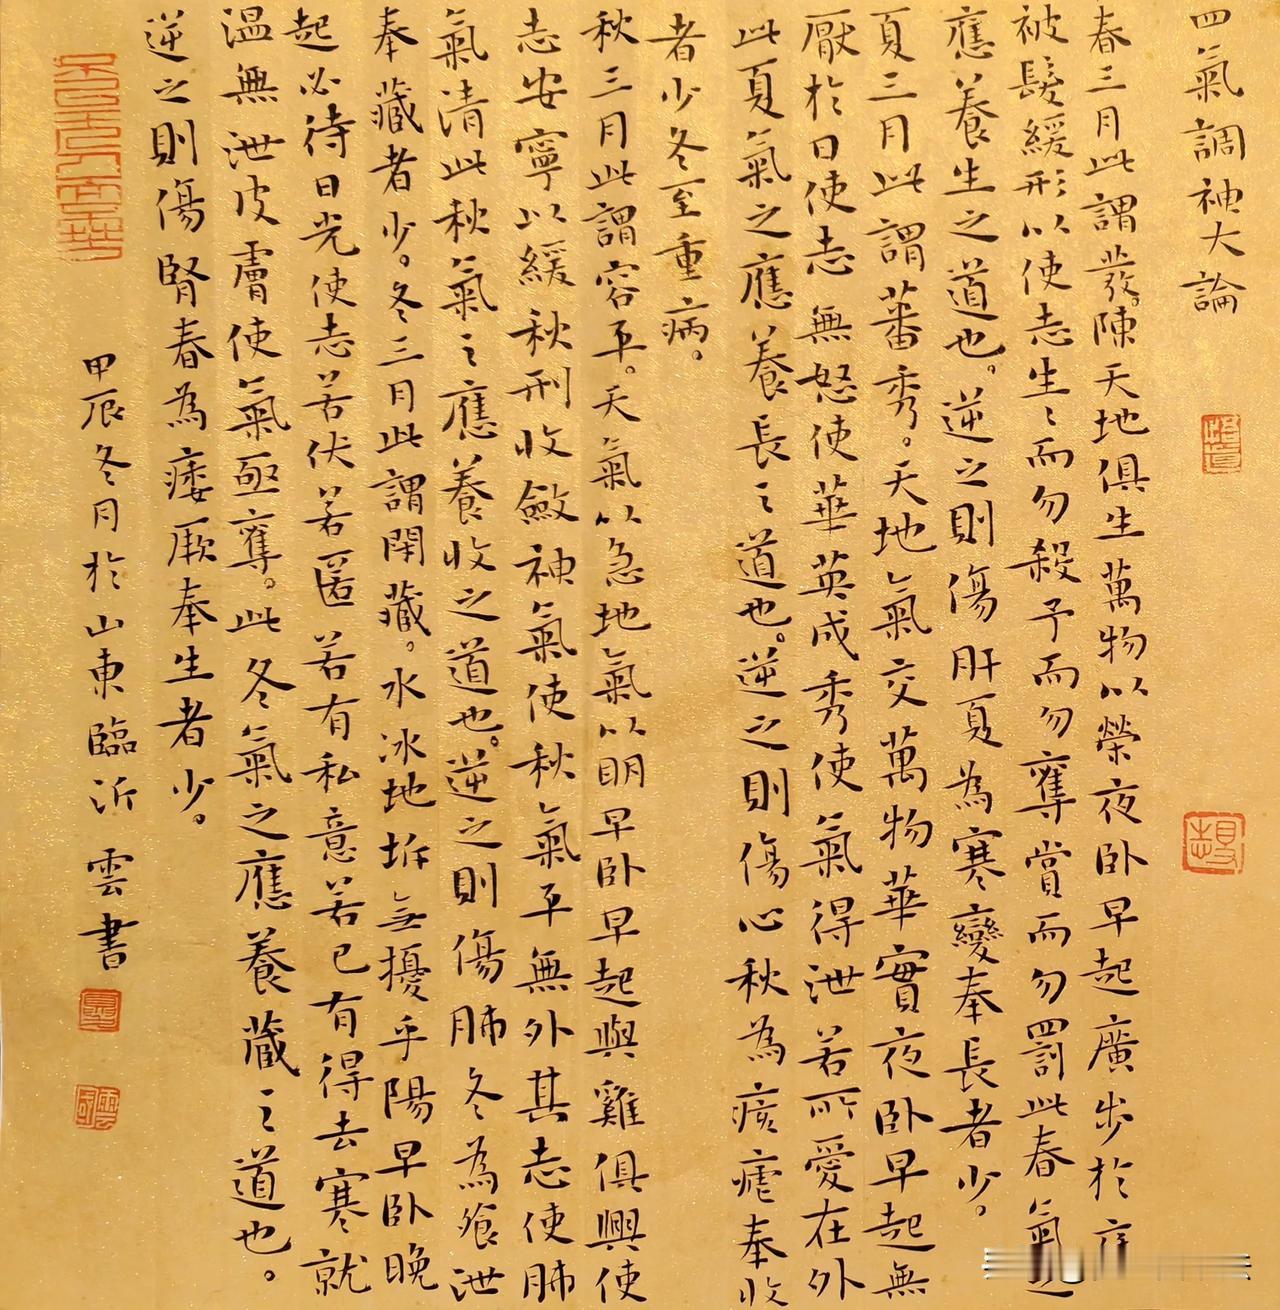 四氣調神大論
春三月此謂發。陳天地俱生萬物以榮夜卧早起廣步於庭
被髮緩形以使志生〻而勿殺予而勿奪賞而勿罰此春氣
應養生之道也。逆之則傷肝夏為寒變奉長者少。
夏三月此謂蕃秀。天地氣交萬物華實夜卧早起無
厭於日使志無怒使華英成秀使氣得泄若所愛在外
此夏氣之應養長之道也。逆之則傷心秋為痎瘧奉收
者少冬至重病。
秋三月此謂容平。天氣以急地氣以明早卧早起與雞俱興使
志安寧以緩秋刑收斂神氣使秋氣平無外其志使肺
氣清此秋氣之應養收之道也。逆之則傷肺冬為飧泄
奉藏者少。冬三月此謂閉藏。水冰地坼無擾乎陽早卧晚
起必待日光使志若伏若匿若有私意若已有得去寒就
温無泄皮膚使氣亟奪。此冬氣之應養藏之道也。
逆之則傷腎春為痿厥奉生者少。
甲辰冬月於山東臨沂 雲書